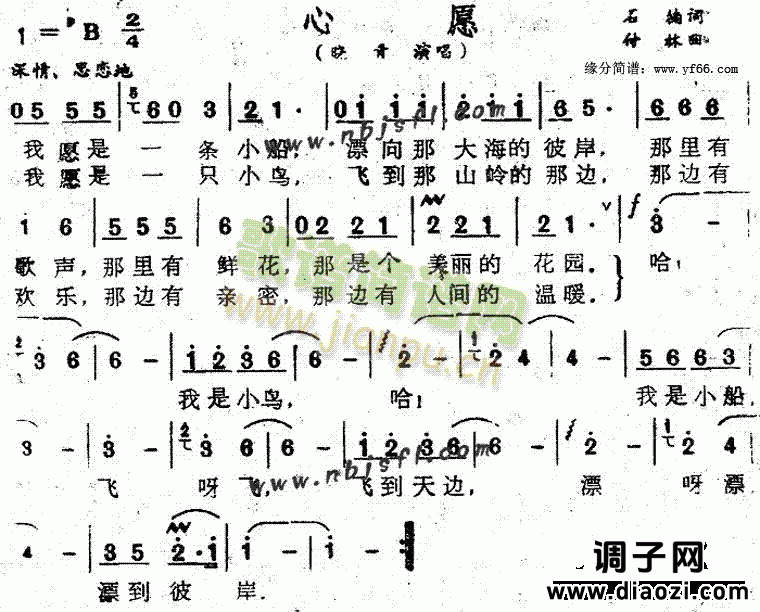 心愿
1=♭B 2/4
(晓青 演唱)
石 词
付林曲
深情、思恋地
缘分简谱: www.yf66.com
05 55 60 3 21· 01 11 2 11 65· 666
我愿是一条小船, 漂向那大海的彼岸, 那里有
我愿是一只小鸟, 飞到那山岭的那边, 那边有
www.nbjsfl.com
1 6 555 6 3 02 21 221 21· f 3 -
歌声,那里有鲜花,那是个美丽的花园. 哈!
欢乐,那边有亲密,那边有人间的温暖.
歌谱简谱网
www.jianpu.cn
3 6 6 - 12 36 6 - 2 - 2 4 4 - 566 63
我是小鸟, 哈! 我是小船,
3 - 3 - 3 6 6 - 12 36 6 - 2 - 2 4
飞呀飞, 飞到天边, 漂呀漂
www.nbjsfl.com
4 - 35 2·1 1 - 1 -
漂到彼岸.
调子网
www.diaozi.com